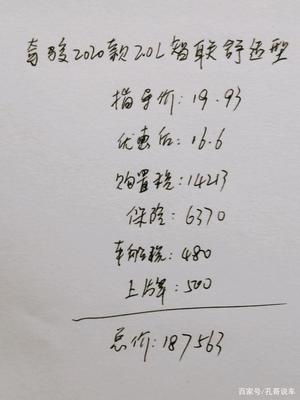 奇骏2020款2.0L智联舒适型
指导价:19.93
优惠后:16.6
购置税:14213
保险:6370
车船税:480
上牌:500
总价:187563
百家号/孔哥说车